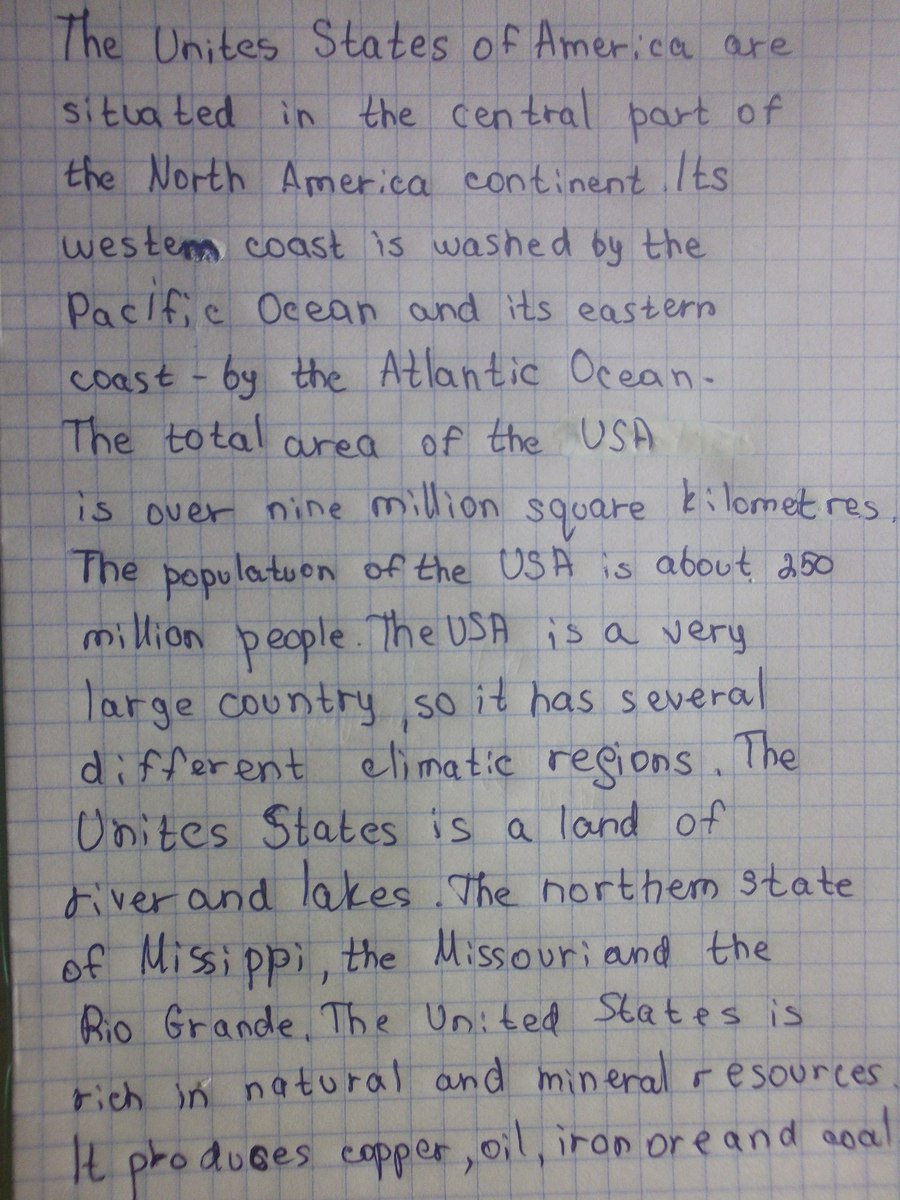 The Unites States of America are
situated in the central part of
the North America continent. Its
western coast is washed by the
Pacific Ocean and its eastern
coast - by the Atlantic Ocean.
The total area of the USA
is over nine million square kilometres.
The population of the USA is about 250
million people. The USA is a very
large country, so it has several
different climatic regions. The
Unites States is a land of
river and lakes. The northem state
of Missippi, the Missouri and the
Rio Grande. The United States is
rich in natural and mineral resources.
It produces copper, oil, iron ore and coal